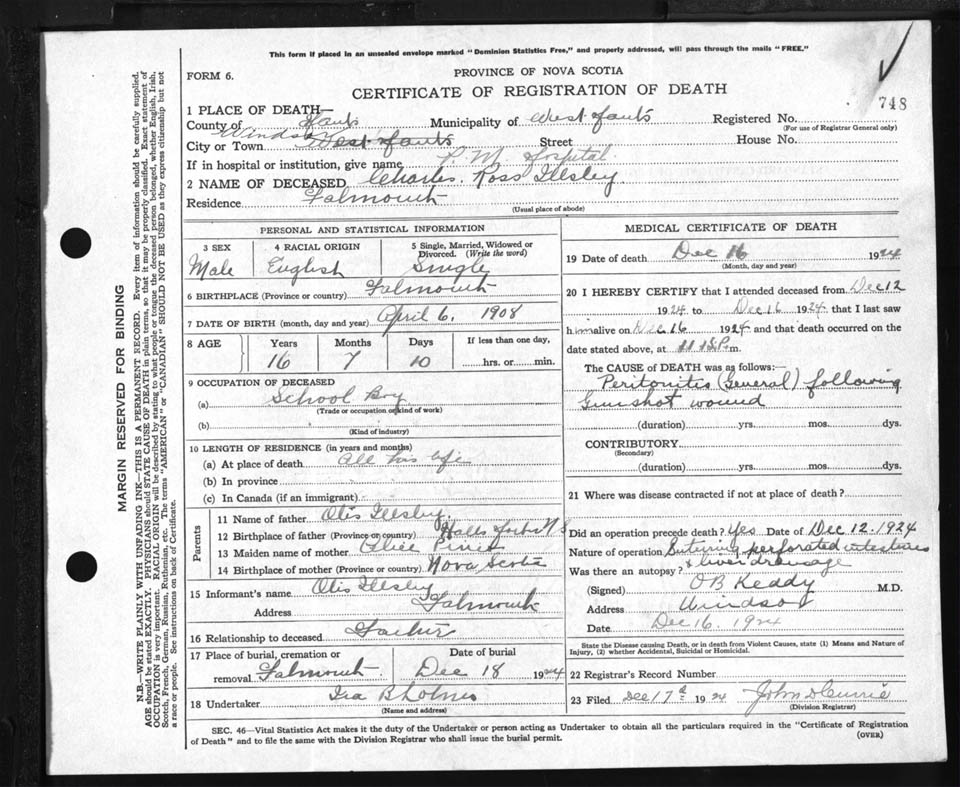 This form if placed in an unsealed envelope marked "Dominion Statistics Free," and properly addressed, will pass through the mails "FREE."
FORM 6.
PROVINCE OF NOVA SCOTIA
CERTIFICATE OF REGISTRATION OF DEATH
748
1 PLACE OF DEATH—
County of Hants Municipality of West Hants Registered No.
(For use of Registrar General only)
City or Town Windsor West Hants Street House No.
If in hospital or institution, give name P. M. Hospital
2 NAME OF DECEASED Charles Ross Illsley
Residence Falmouth
(Usual place of abode)
PERSONAL AND STATISTICAL INFORMATION
3 SEX 4 RACIAL ORIGIN 5 Single, Married, Widowed or Divorced. (Write the word)
Male English Single
6 BIRTHPLACE (Province or country) Falmouth
7 DATE OF BIRTH (month, day and year) April 6, 1908
8 AGE Years Months Days If less than one day,
16 7 10 hrs. or min.
9 OCCUPATION OF DECEASED
(a) School Boy
(Trade or occupation or kind of work)
(b)
(Kind of industry)
10 LENGTH OF RESIDENCE (in years and months)
(a) At place of death All his life
(b) In province
(c) In Canada (if an immigrant)
Parents
11 Name of father Otis Illsley
12 Birthplace of father (Province or country) Halls Harbor N S
13 Maiden name of mother Alice
14 Birthplace of mother (Province or country) Nova Scotia
15 Informant's name Otis Illsley
Address Falmouth
16 Relationship to deceased Father
17 Place of burial, cremation or removal Falmouth Date of burial Dec 18 1924
18 Undertaker Ira B Holmes
(Name and address)
MEDICAL CERTIFICATE OF DEATH
19 Date of death Dec 16 1924
(Month, day and year)
20 I HEREBY CERTIFY that I attended deceased from Dec 12
1924 to Dec 16 1924, that I last saw
him alive on Dec 16 1924 and that death occurred on
date stated above, at P.m.
The CAUSE OF DEATH was as follows:
Peritonitis (General) following
Gunshot wound
(duration) yrs. mos. dys.
CONTRIBUTORY
(Secondary)
(duration) yrs. mos. dys.
21 Where was disease contracted if not at place of death?
Did an operation precede death? Yes Date of Dec 12. 1924
Nature of operation Suturing perforated intestines
& liver drainage
Was there an autopsy?
(Signed) O B Keddy M.D.
Address Windsor
Date Dec 16. 1924
State the Disease causing Death, or in death from Violent Causes, state (1) Means and Nature of Injury, (2) whether Accidental, Suicidal or Homicidal.
22 Registrar's Record Number
23 Filed Dec 17 1924 John D Currie
(Division Registrar)
SEC. 46—Vital Statistics Act makes it the duty of the Undertaker or person acting as Undertaker to obtain all the particulars required in the "Certificate of Registration
of Death" and to file the same with the Division Registrar who shall issue the burial permit. (OVER)
MARGIN RESERVED FOR BINDING
N.B.—WRITE PLAINLY WITH UNFADING INK—THIS IS A PERMANENT RECORD. Every item of information should be carefully supplied.
AGE should be stated EXACTLY. PHYSICIANS should STATE CAUSE OF DEATH in plain terms, so that it may be properly classified. Exact statement of
OCCUPATION is very important. RACIAL ORIGIN will be described by stating to what people or tongue the deceased person belonged, whether English, Irish,
Scotch, French, German, Russian, Ruthenian, etc. The terms "AMERICAN" or "CANADIAN" SHOULD NOT BE USED as they express citizenship but not
a race or people. See instructions on back of Certificate.